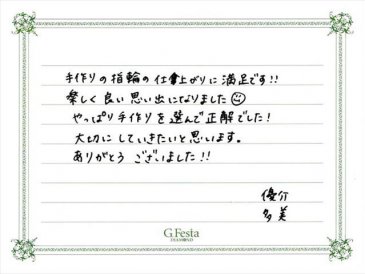 手作りの指輪の仕上がりに満足です!!
楽しく良い思い出になりました☺
やっぱり手作りを選んで正解でした!
大切にしていきたいと思います。
ありがとうございました!!
優介
多美
G.Festa
DIAMOND